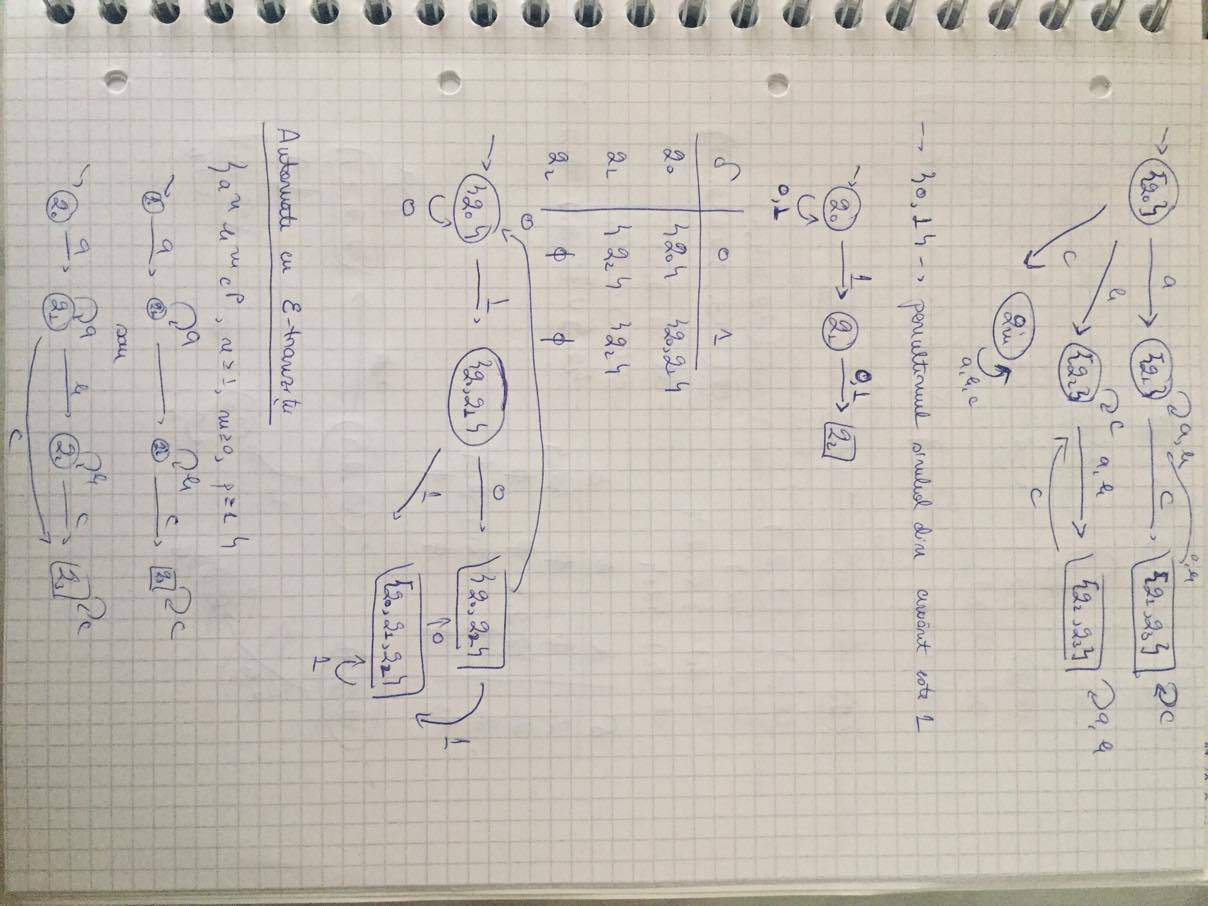 → {q₀} a → {q₁} a, b c → {q₁, q₃} c
a, b
b {q₂} c a, b → {q₂, q₃} a, b
c
c qin a, b, c
→ {0, 1} → penultimul simbol din cuvânt este 1
→ q₀ 1 → q₁ 0,1 → q₂
0,1
δ 0 1
q₀ {q₀} {q₀, q₁}
q₁ {q₂} {q₂}
q₂ ϕ ϕ
0
→ {q₀} 1 → {q₀, q₁} 0 → {q₀, q₂} 1
0 1 0
{q₀, q₁, q₂} 1
Automate cu ε-tranziții
{aⁿ bᵐ cᵖ, n ≥ 1, m ≥ 0, p ≥ 1}
→ q₀ a → q₁ a → q₂ b c → q₃ c
sau
→ q₀ a → q₁ a b → q₂ b c → q₃ c
c